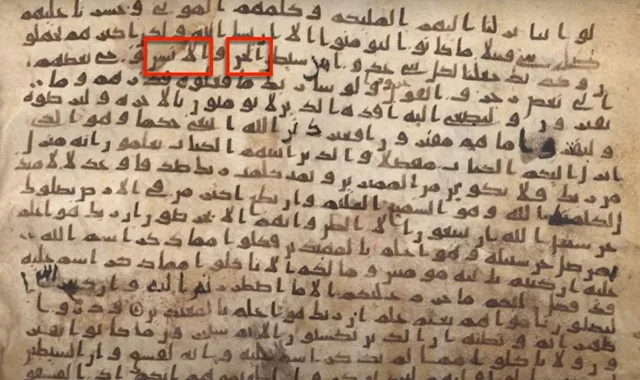 لو اننا نزلنا اليهم الملئكه وكلمهم الموتى وحشرنا عليهم
كل شى قبلا ما كانوا ليومنوا الا ان يشا الله ولكن اكثرهم يجهلو
ن وكذلك جعلنا لكل نبى عدوا شيطين الجن والانس يوحى بعضهم
الى بعض زخرف القول غرورا ولو شا ربك ما فعلوه فذرهم وما
يفترون ولتصغى اليه افده الذين لا يومنون بالاخره وليرضوه
وليقترفوا ما هم مقترفون افغير الله ابتغى حكما وهو الذى
انزل اليكم الكتب مفصلا والذين اتينهم الكتب يعلمون انه منزل
من ربك فلا تكونن من الممترين وتمت كلمت ربك صدقا وعدلا لا مبد
ل لكلمته وهو السميع العليم وان تطع اكثر من فى الارض يضلوك
عن سبيل الله ان يتبعون الا الظن وان هم الا يخرصون ان ربك هو اعلم
من يضل عن سبيله وهو اعلم بالمهتدين فكلوا مما ذكر اسم الله
عليه ان كنتم بايته مومنين وما لكم الا تاكلوا مما ذكر اسم الله عليه
وقد فصل لكم ما حرم عليكم الا ما اضطررتم اليه وان كثيرا
ليضلون باهوايهم بغير علم ان ربك هو اعلم بالمعتدين وذروا
ظهر الاثم وبطنه ان الذين يكسبون الاثم سيجزون بما كانوا يقتر
فون ولا تاكلوا مما لم يذكر اسم الله عليه وانه لفسق وان الشيطين